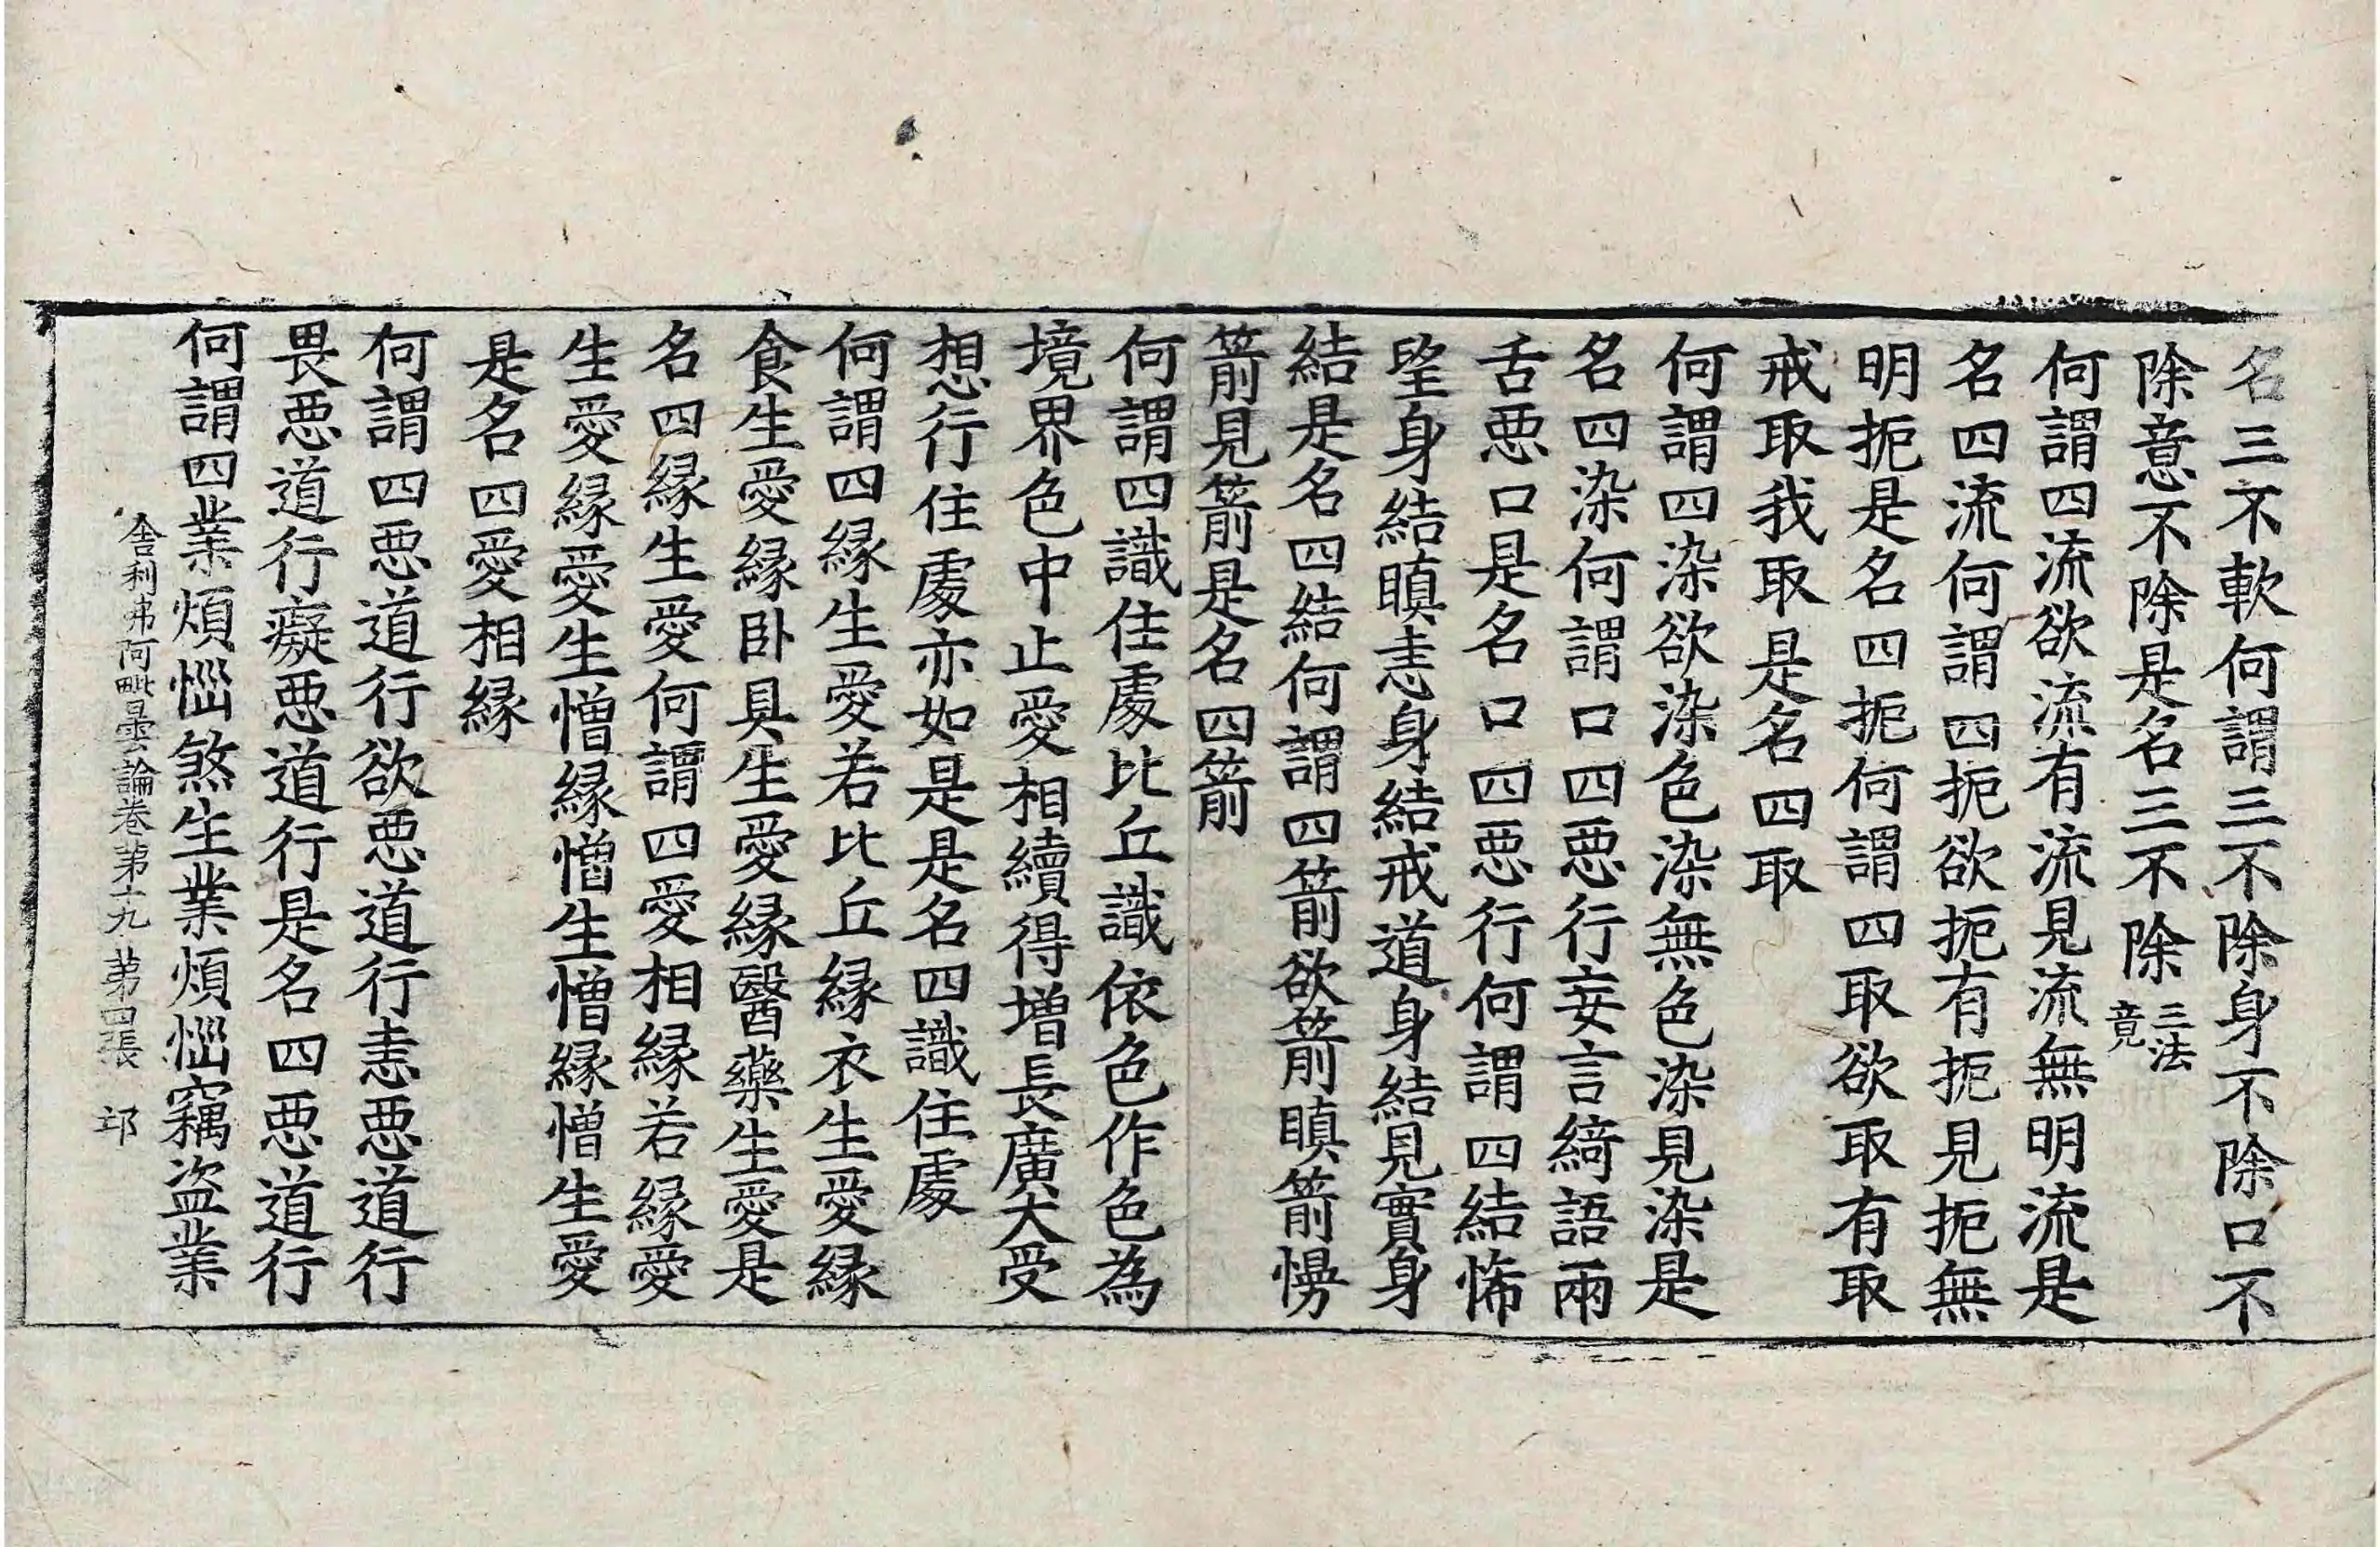 名三不軟何謂三不除身不除口不
除意不除是名三不除三法竟
何謂四流欲流有流見流無明流是
名四流何謂四扼欲扼有扼見扼無
明扼是名四扼何謂四取欲取有取
戒取我取是名四取
何謂四染欲染色染無色染見染是
名四染何謂口四惡行妄言綺語兩
舌惡口是名口四惡行何謂四結悕
望身結瞋恚身結戒道身結見實身
結是名四結何謂四箭欲箭瞋箭慢
箭見箭是名四箭
何謂四識住處比丘識依色作色為
境界色中止愛相續得增長廣大受
想行住處亦如是是名四識住處
何謂四緣生愛若比丘緣衣生愛緣
食生愛緣卧具生愛緣醫藥生愛是
名四緣生愛何謂四愛相緣若緣愛
生愛緣愛生憎緣憎生憎緣憎生愛
是名四愛相緣
何謂四惡道行欲惡道行恚惡道行
畏惡道行癡惡道行是名四惡道行
何謂四業煩惱煞生業煩惱竊盜業
舍利弗阿毗曇論卷苐十九 苐四張 邛